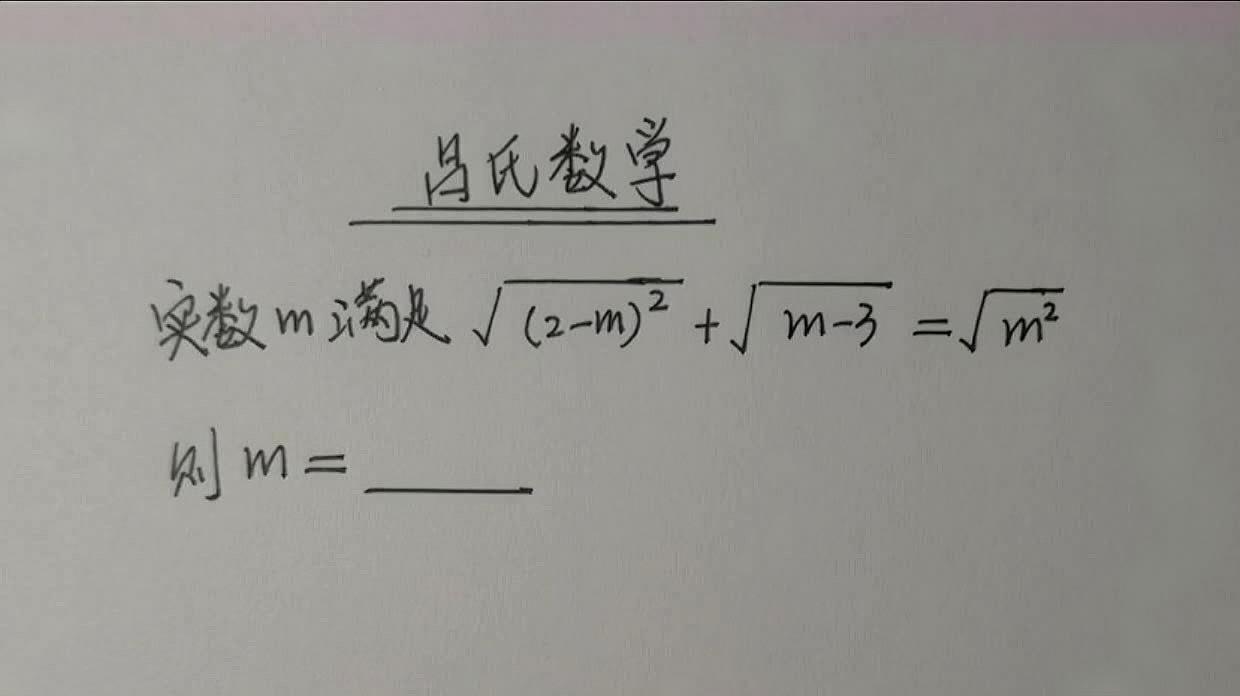 吕氏数学
实数m满足 √(2-m)² + √m-3 = √m²
则 m = ____